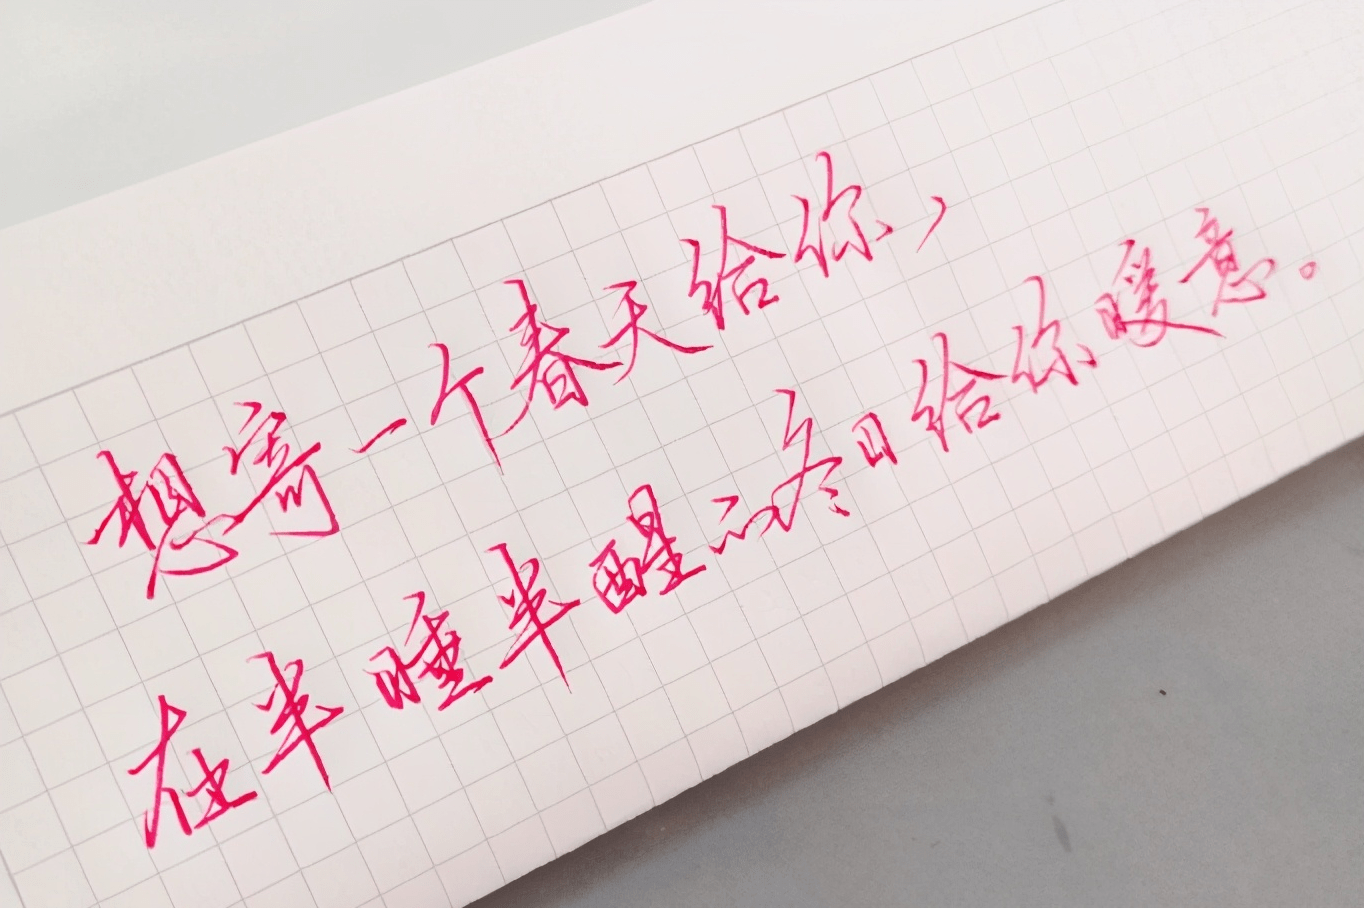 想寄一个春天给你，
在半睡半醒的冬日给你暖意。